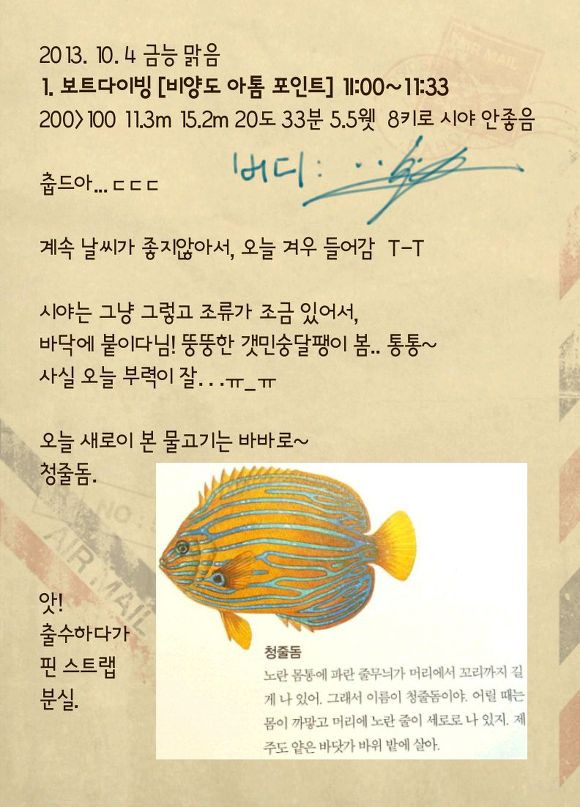 2013. 10. 4 금능 맑음
1. 보트다이빙 [비양도 아톰 포인트] 11:00~11:33
200>100 11.3m 15.2m 20도 33분 5.5웻 8키로 시야 안좋음
버디:
춥드아... ㄷㄷㄷ
계속 날씨가 좋지않아서, 오늘 겨우 들어감 T-T
시야는 그냥 그렇고 조류가 조금 있어서,
바닥에 붙이다님! 뚱뚱한 갯민숭달팽이 봄.. 통통~
사실 오늘 부력이 잘...ㅠ_ㅠ
오늘 새로이 본 물고기는 바바로~
청줄돔.
NO:
AIR MAIL
앗!
출수하다가
핀 스트랩
분실.
청줄돔
노란 몸통에 파란 줄무늬가 머리에서 꼬리까지 길
게 나 있어. 그래서 이름이 청줄돔이야. 어릴 때는
몸이 까맣고 머리에 노란 줄이 세로로 나 있지. 제
주도 얕은 바닷가 바위 밭에 살아.